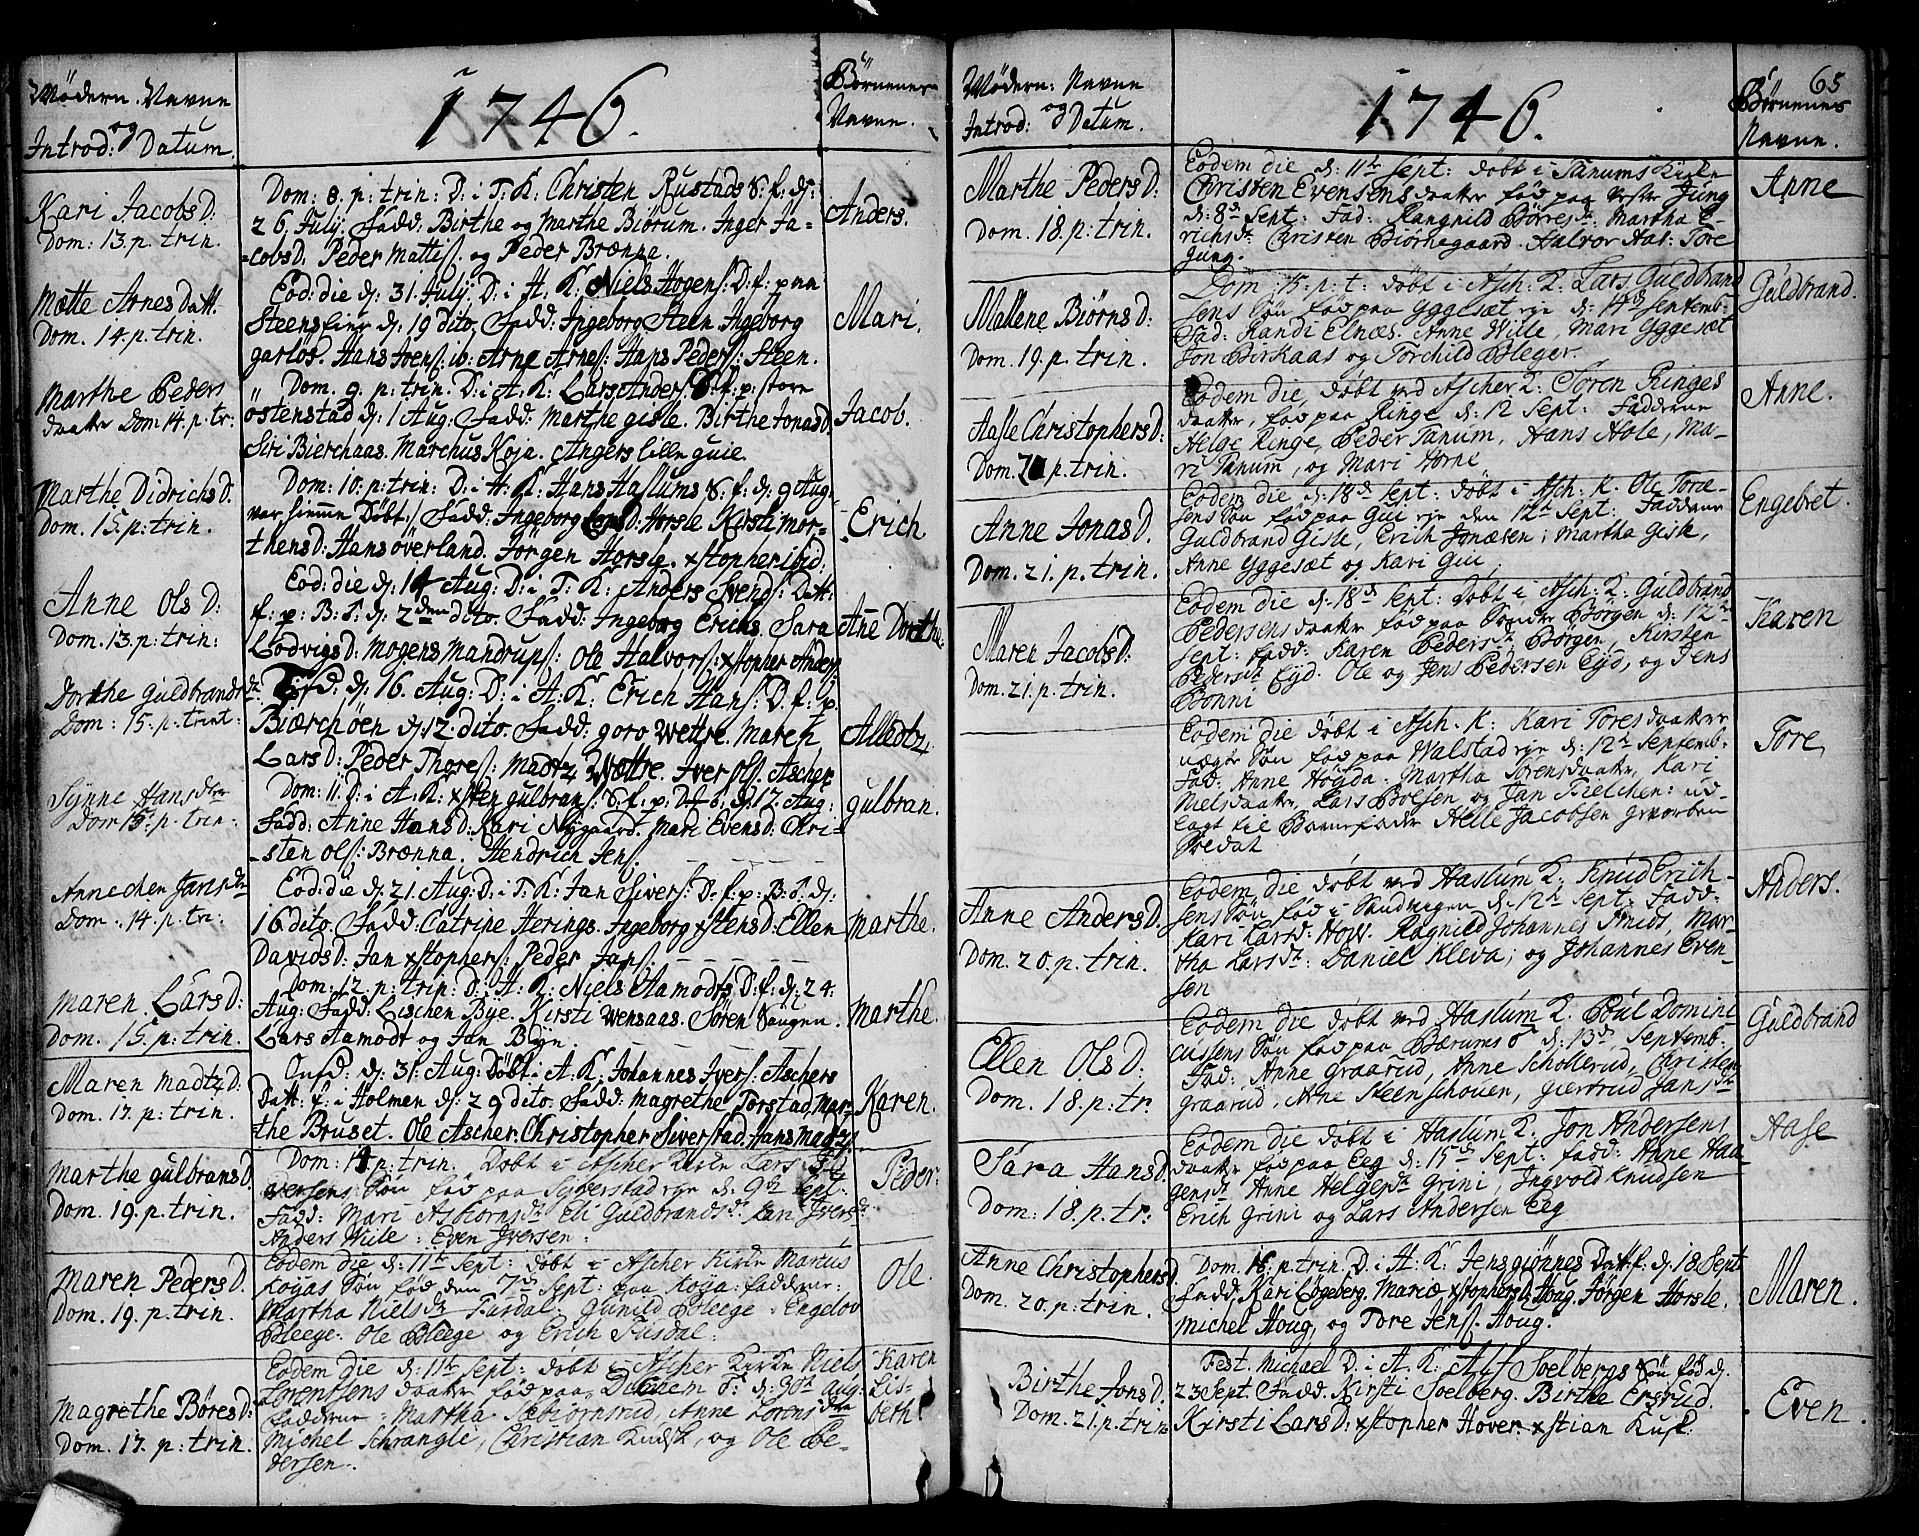 Mödern. Navne
og
Introd: Datum.
1746.
Börnenes
Navne.
Kari Jacobs D:
Dom: 13. p. trin.
Dom: 8. p: trin: D: i T. K: Christen Rustads S. f. d:
26 July. Fadd: Birthe og Marthe Biörum. Inger Ja-
cobs D. Peder Mattis. og Peder Brænna.
Anders.
Mætte Arnes Datt.
Dom: 14. p. trin.
Eod: die d: 31 July. D: i H. K: Niels Hogens: D. f: paa
Steens d: 19 dito. Fadd: Ingeborg Steen Ingeborg
garlös. Hans Ivens: ib: Arne Arnes: Hans Peders: Steen.
Mari.
Marthe Peders
daatter Dom 14. p. tr:
Dom. 9. p: trin. D: i A. K: Lars Anders: S. f: p: store
östenstad d: 1 Aug. Fadd: Marthe gisle. Birthe Jonas D.
Siri Bierchaas. Marchus Koja. Angers lille guie.
Jacob.
Marthe Didrichs D.
Dom. 15. p: trin.
Dom: 10: p: trin: D: i H. K: Hans Haslums S. f: d: 9 Aug:
var hiemme Döbt:/ Fadd: Ingeborg Horsle Kirsti Mor-
thens D: Hans överland. Jörgen Horsle. xstopher ibid:
Erich
Anne Ols D:
Dom. 13. p: trin:
Eod: die d: 14 Aug: D: i T. K: Anders Svends: Datt:
f: p: B: T. d: 2den dito. Fadd: Ingeborg Erichs. Sara
Lodvigs D: Mogens Mandrups: Ole Halvors: xstopher Anders:
Ane Dorthe.
Dorthe Guldbrands dr.
Dom: 15. p: trint:
d: 16. Aug: D: i A. K: Erich Hans: D. f: p.
Biærchöen d: 12. dito. Fadd: goro Wettre. Maren
Lars D: Peder Thores: Madtz Wættre. Iver ols: Ascher.
Synne Hansdtr
Dom 15. p. trin:
Dom: 11. D: i A. K: xsten gulbrans: S. f. p: d: 12. Aug:
Fadd: Anne Hans D: Kari Nÿgaard. Mari Evens D: Kri-
sten ols: Brænna. Hendrich Jens.
gulbran.
Annechen Jans dr
Dom. 14. p. tri:
Eod: die d: 21. Aug: D: i T. K: Jan Sivers: D. f: p: B: T: d:
16 dito. Fadd: Catrine Herings. Ingeborg xstens D: Ellen
Davids D: Jan xstophers: Peder Jans.
Marthe.
Maren Lars D:
Dom. 15. p: trin.
Dom: 12. p: trin: D: i A. K: Niels Aamodts D: f: d: 24.
Aug: Fadd: Lischen Bye. Kirsti Wensaas. Sören Haugen.
Lars Aamodt og Jan Byn.
Marthe.
Maren Madtz D:
Dom. 17. p: trin.
Onsd: d: 31. Aug: Döbt i A. K: Johannes Ivers: Aschers
Datt: f: i Holmen d: 29 dito. Fadd: Magrethe Torstad, Mar-
the Bruset. Ole Ascher. Christopher Siverstad. Hans Madtz:
Karen.
Marthe gulbrans D.
Dom. 19. p: trin.
Dom: 14 p: trin. Döbt i Ascher Kirke Lars
versens Sön fød paa Syverstad d: 9de Sept:
Fadd: Mari Asbiornsdr Eli Guldbrandsdr
Anders Wiile: Even Iversen:
Peder:
Maren Peders D.
Dom. 19. p: trin.
Eodem die d: 11te Sept: döbt i Ascher Kirke Martus
Kojas Sön fød den 7de Sept: paa Koja: faddere:
Martha Nielsdr Fusdal: Gunild Bleege: Engelov
Bleege: Ole Bleege og Erich Fusdal:
Ole.
Magrethe Börres D:
Dom. 17. p: trin.
Eodem die d: 11te Sept: döbt i Ascher Kirke Niels
Lorentsens daatter fød paa d: 30te Aug:
faddere: Martha Sæbiornsrud, Anne Lorensdtr
Michel Schrangle, Christian Kudsk, og Ole Pe-
dersen.
Karen
Lis-
beth
Mödern: Navne
Introd: og Datum.
1746.
65
Börnenes
Navne.
Marthe Peders D:
Dom. 18. p: trin.
Eodem die d: 11te Sept: döbt i Tanums Kirke
Christen Evensens daatter fød paa vestre Jung
d: 8de Sept: Fad: Rangnild Börresdr Martha E-
richsdr Christen Biörnegaard. Halvor Aas: Tore
Jung.
Anne
Mallene Biörns D:
Dom. 19. p. trin.
Dom: 15. p. t: döbt i Asch: K. Lars Guldbrand
sens Sön fød paa Yggesæt d: 14de Septemb:
Fad: Randi Elnæs. Anne Wille, Mari Yggesæt
Jon Berkaas og Torchild Bleger.
Guldbrand.
Aasse Christophers D:
Dom. p. trin.
Eodem die, döbt ved Ascher K: Sören Ringes
daatter, fød paa Ringe d: 12 Sept: Faddere
Helge Ringe, Peder Tanum, Hans Hole, Ma-
ri Tanum, og Mari Horne
Anne.
Anne Jonas D.
Dom. 21. p. trin.
Eodem die d: 18de Sept: döbt i Asch: K. Ole Tore-
sens Sön fød paa Gui den 12te Sept: Faddere
Guldbrand Gisle, Erich Jonæsen, Martha Gisle,
Anne Yggesæt og Kari Gui,
Engebret.
Maren Jacobs D:
Dom. 21. p. trin.
Eodem die d: 18de Sept: döbt i Asch: K: Guldbrand
Pedersens daatter fød paa Söndre Borgen d: 12te
Sept: Fadd: Karen Pedersdr Borgen, Kirsten
Pedersdr Eijd. Ole og Jens Pedersen Eijd, og Jens
Bonni
Karen
Eodem die döbt i Asch. K: Kari Toresdaatter
uægte Sön fød paa Walstad d: 12te Septemb:
Fad: Anne Högda: Martha Sörensdaatter, Kari
Nielsdaatter, Lars Bolsen og Jan Trelchen: ud-
lagt til Barnefader Helle Jacobsen gevorben
Soldat
Tore
Anne Anders D.
Dom. 20. p. trin.
Eodem die döbt ved Haslum K: Knud Erich-
sens Sön fød i Sandvigen d: 12te Sept: Fadd:
Kari Larsdr: Hov. Ragnild Johannes Smids, Mar-
tha Larsdr: Daniel Kleva; og Johannes Even-
sen
Anders.
Ellen Ols D:
Dom. 18. p: tr.
Eodem die döbt ved Haslum K. Poul Domini
cussens Sön fød paa Bærums d: 13de Septemb:
Fad: Anne Graarud, Anne Schollerud, Christen
graarud, Arne Steenschouen, Giertrud Jansdr
Guldbrand
Sara Hans D.
Dom: 18. p. tr:
Eodem die döbt i Haslum K. Jon Andersens
daatter fød paa Eeg d: 15de Sept: Fadd: Anne Haa-
gensdr Anne Helgesdr Grini, Ingvold Knudsen
Erich Grini og Lars Andersen Eeg
Aase
Anne Christophers D.
Dom. 20. p: trin.
Dom. 16. p. trin. D. i H. K: Jens giönnes Datt: f. d: 18. Sept
Fadd: Kari Lögeberg. Mariæ xstophers D. Houg. Jörgen Horsle.
Michel Houg, og Tore Jens. Houg.
Maren.
Birthe Jons D.
Dom. 21. p: trin.
Fest. Michael D: i A. K: Alf Soelbergs Sön fød d:
23 Sept. Fadd: Kirsti Soelberg. Birthe Ersrud.
Kirsti Lars D: xstopher Hover. xstian Kusk.
Even.